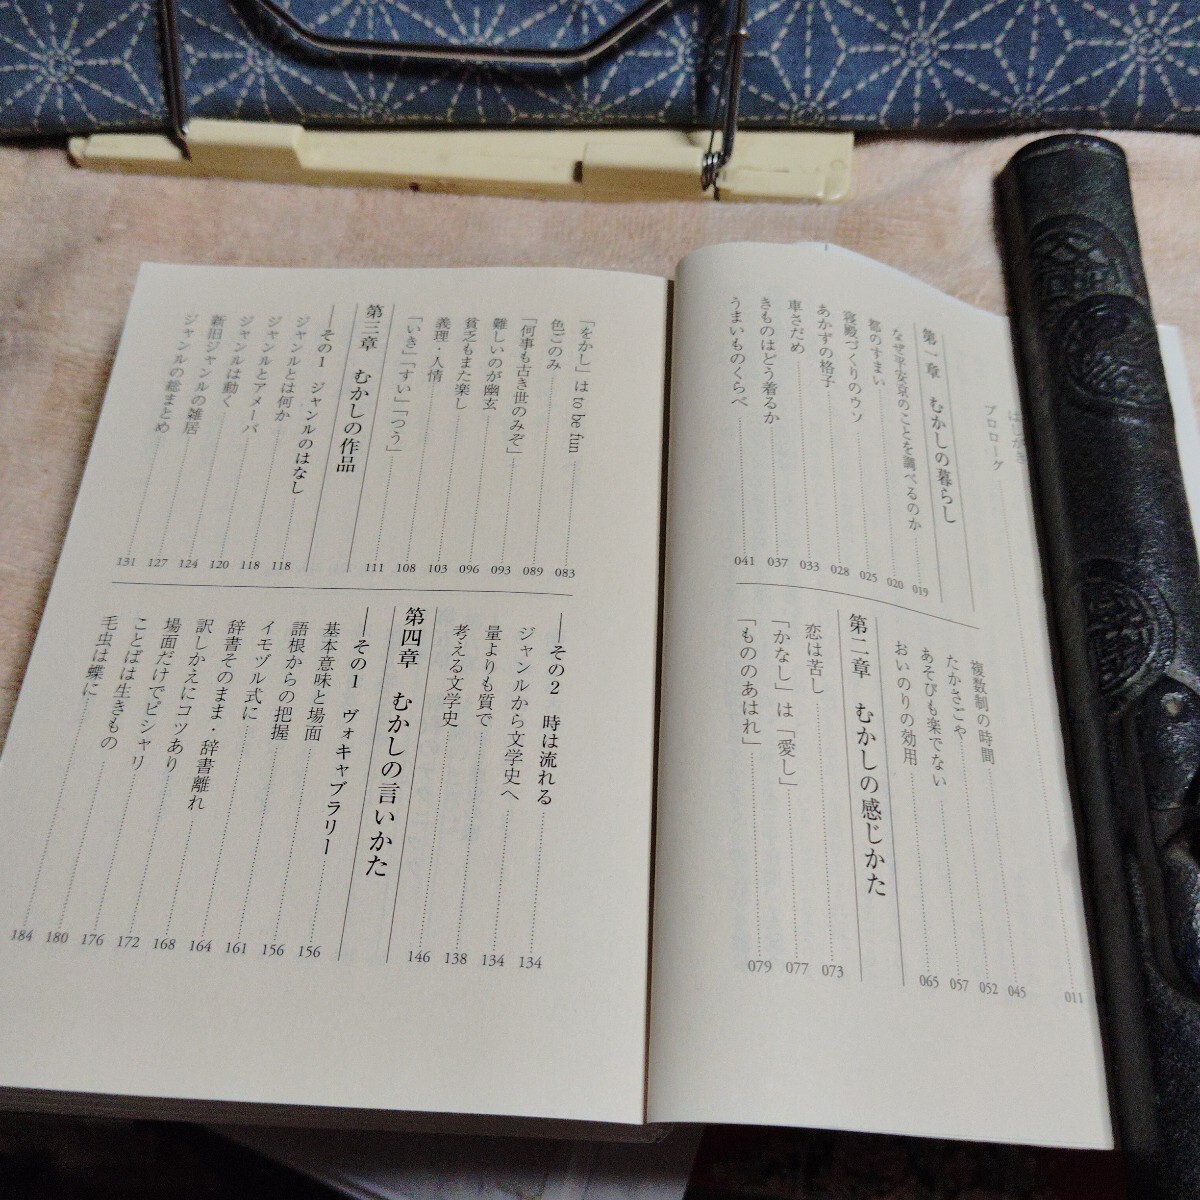 はしがき
プロローグ 011
第一章 むかしの暮らし
なぜ平安京のことを調べるのか 019
都のすまい 020
寝殿づくりのウソ 025
あかずの格子 028
車さだめ 033
きものはどう着るか 037
うまいものくらべ 041
複数制の時間 045
たかさごや 052
あそびも楽でない 057
おいのりの効用 065
第二章 むかしの感じかた
恋は苦し 073
「かなし」は「愛し」 077
「もののあはれ」 079
「をかし」は to be fun 083
色ごのみ 089
「何事も古き世のみぞ」 093
難しいのが幽玄 096
貧乏もまた楽し 103
義理・人情 108
「いき」「すい」「つう」 111
第三章 むかしの作品
――その1 ジャンルのはなし 118
ジャンルとは何か 118
ジャンルとアメーバ 120
ジャンルは動く 124
新旧ジャンルの雑居 127
ジャンルの総まとめ 131
――その2 時は流れる 134
ジャンルから文学史へ 134
量よりも質で 138
考える文学史 146
第四章 むかしの言いかた
――その1 ヴォキャブラリー 156
基本意味と場面 156
語根からの把握 161
イモヅル式に 164
辞書そのまま・辞書離れ 168
訳しかえにコツあり 172
場面だけでピシャリ 176
ことばは生きもの 180
毛虫は蝶に 184